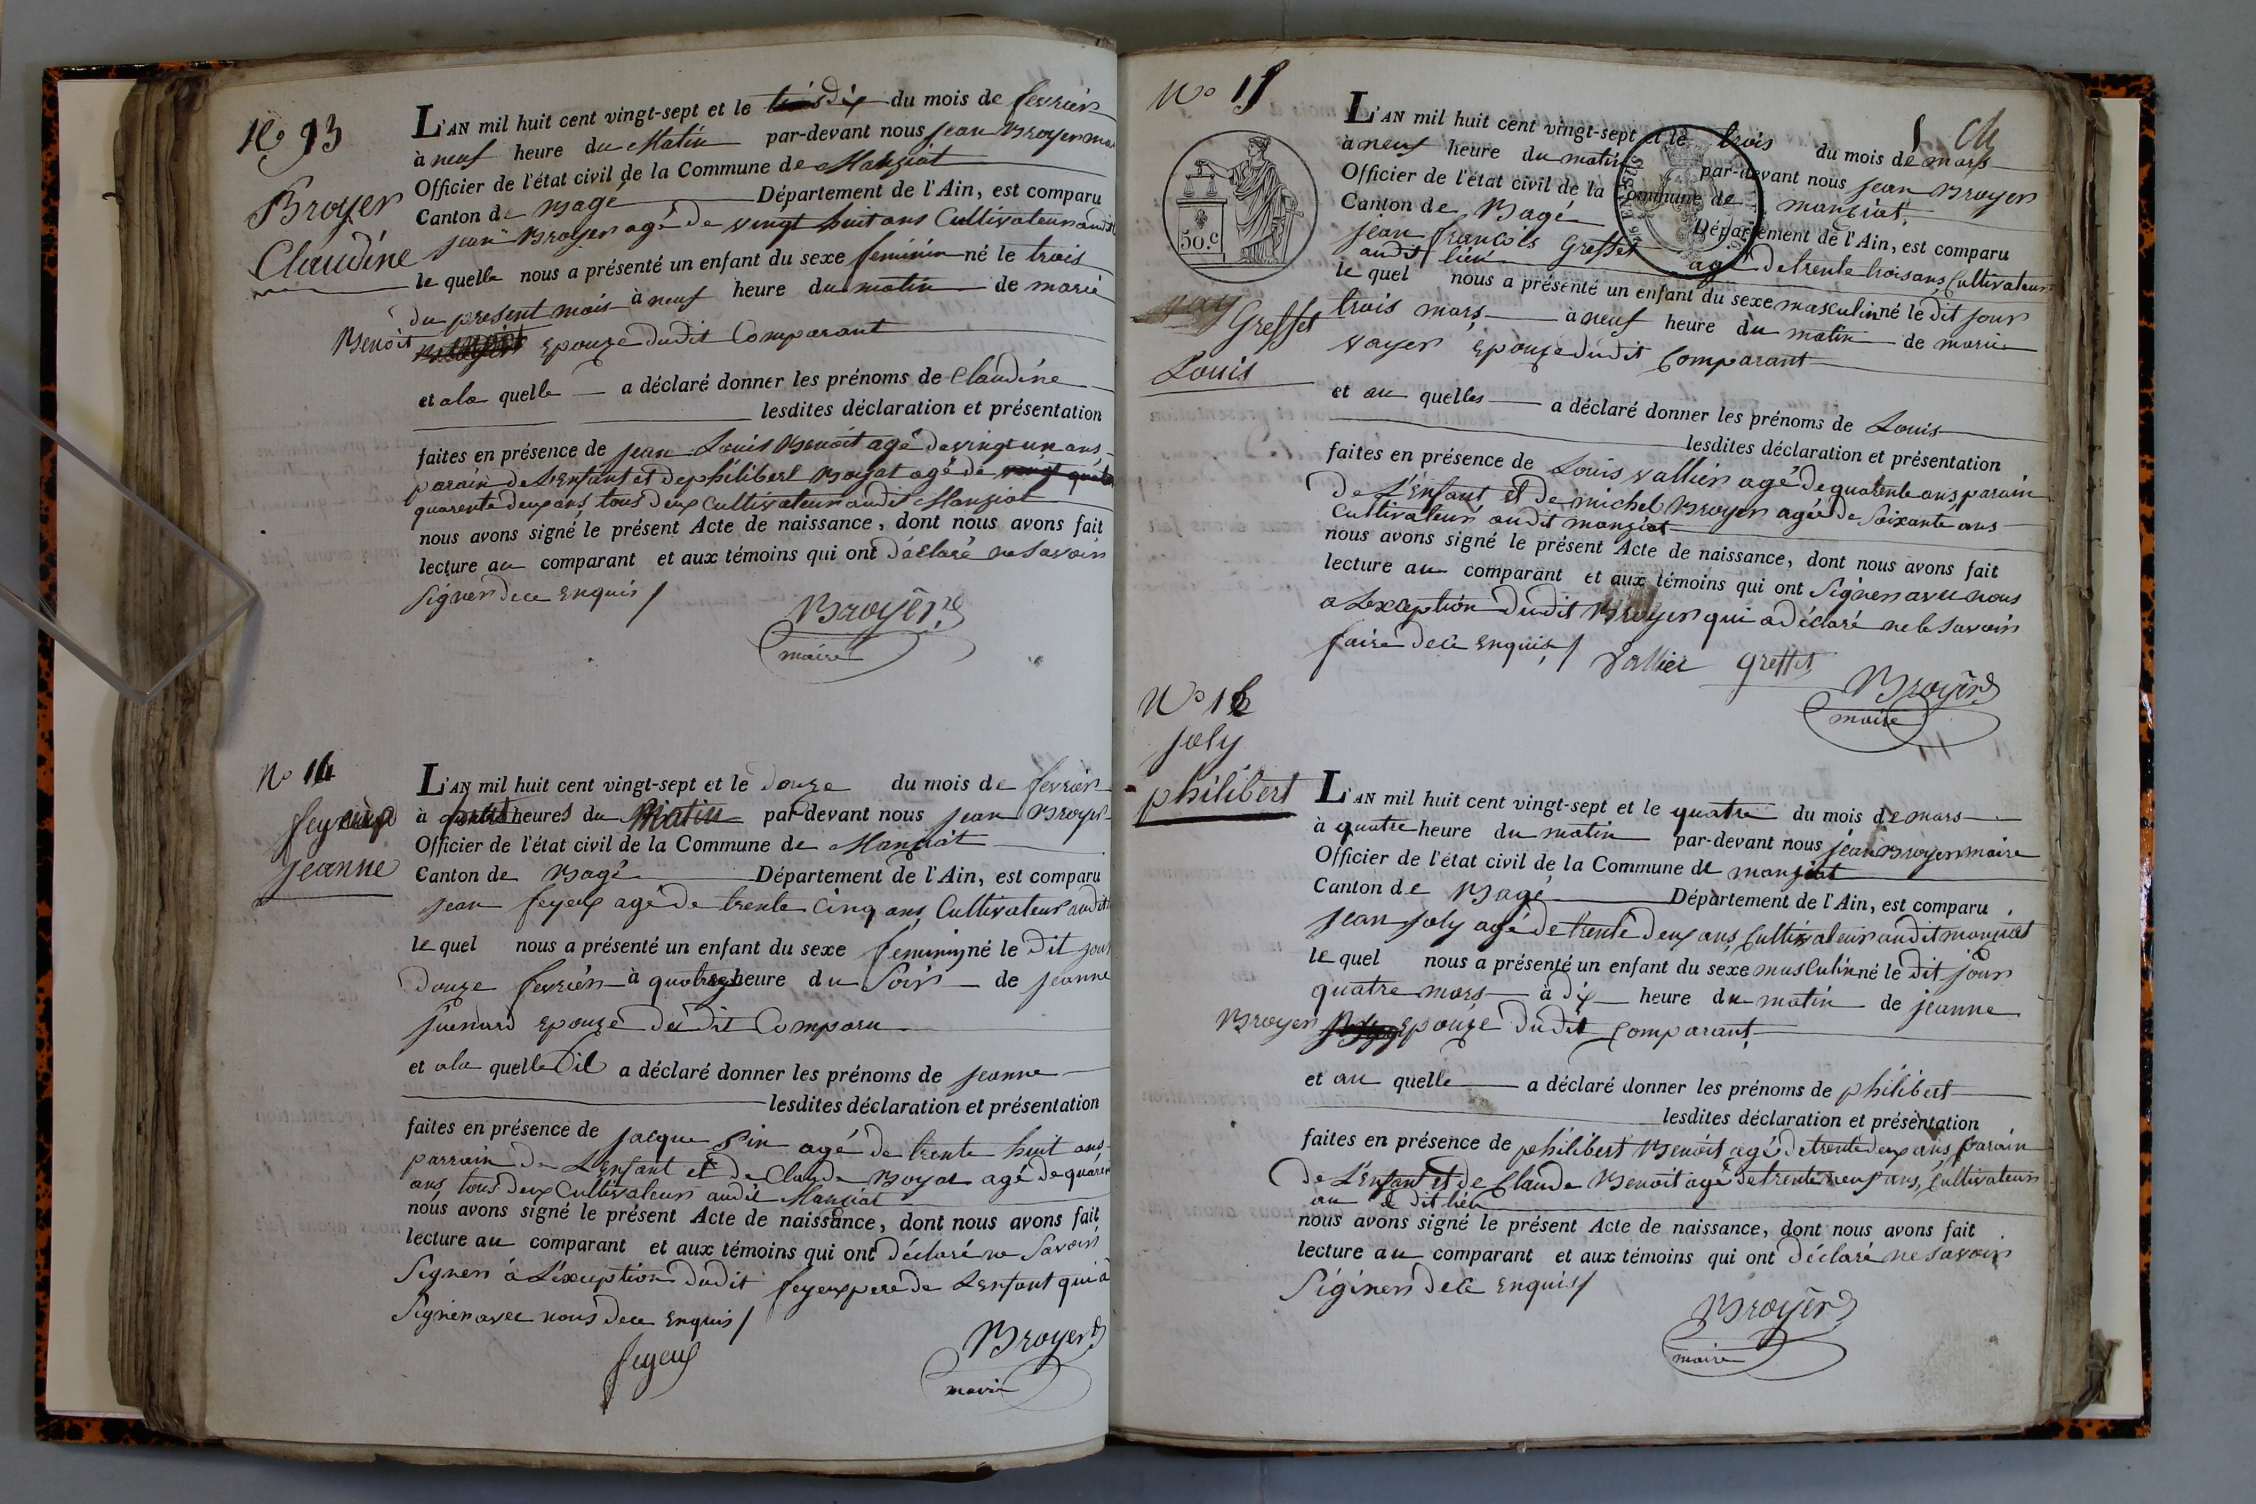 No 13
Broyer
Claudine
L'AN mil huit cent vingt-sept et le dix du mois de fevrier
à neuf heure du Matin par-devant nous jean Broyer maire
Officier de l'état civil de la Commune de Manziat
Canton de Bagé Département de l'Ain, est comparu
jean Broyer agé de vingt huit ans Cultivateur audit
le quelle nous a présenté un enfant du sexe feminin né le trois
du present mois à neuf heure du matin de marie
Benoit Epouze dudit Comparant
et a la quelle a déclaré donner les prénoms de Claudine
lesdites déclaration et présentation
faites en présence de jean Louis Benoit agé de vingt un ans
parain de L'Enfant et de philibert Boyat agé de
quarente deux ans, tous deux Cultivateur audit Manziat
nous avons signé le présent Acte de naissance, dont nous avons fait
lecture au comparant et aux témoins qui ont déclaré ne savoir
signer de ce Enquis /
Broyer
maire
No 14
feyeux
jeanne
L'AN mil huit cent vingt-sept et le douze du mois de fevrier
à heures du Matin par-devant nous jean Broyer
Officier de l'état civil de la Commune de Manziat
Canton de Bagé Département de l'Ain, est comparu
jean feyeux agé de trente cinq ans Cultivateur audit
le quel nous a présenté un enfant du sexe feminin né le dit jour
douze fevrier à quatre heure du Soir de jeanne
juenard Epouze du dit Comparu
et a la quelle il a déclaré donner les prénoms de jeanne
lesdites déclaration et présentation
faites en présence de jacque Pin agé de trente huit ans
parrain de L'Enfant et de Claude Boyat agé de quarente
ans, tous deux Cultivateur audit Manziat
nous avons signé le présent Acte de naissance, dont nous avons fait
lecture au comparant et aux témoins qui ont déclaré ne Savoir
Signer à L'exception dudit feyeux pere de L'enfant qui à
Signer avec nous de ce Enquis /
feyeux
Broyer
maire
No 15
50.c
Greffet
Louis
L'AN mil huit cent vingt-sept et le trois du mois de mars
à neuf heure du matin par-devant nous jean Broyer
Officier de l'état civil de la Commune de manziat
Canton de Bagé Département de l'Ain, est comparu
jean françois Greffet agé de trente trois ans, Cultivateur
audit lieu
le quel nous a présenté un enfant du sexe masculin né le dit jour
trois mars à neuf heure du matin de marie
vayer Epouze dudit Comparant
et au quelles a déclaré donner les prénoms de Louis
lesdites déclaration et présentation
faites en présence de Louis vallier agé de quarente ans parain
de L'Enfant et de michel Broyer agé de Soixante ans
Cultivateur audit manziat
nous avons signé le présent Acte de naissance, dont nous avons fait
lecture au comparant et aux témoins qui ont Signer avec nous
a Lexception dudit Broyer qui a déclaré ne le savoir
faire de ce Enquis /
Vallier greffet
Broyer
maire
No 16
joly
philibert
L'AN mil huit cent vingt-sept et le quatre du mois de mars
à quatre heure du matin par-devant nous jean Broyer maire
Officier de l'état civil de la Commune de manziat
Canton de Bagé Département de l'Ain, est comparu
jean joly agé de trente deux ans, Cultivateur audit manziat
le quel nous a présenté un enfant du sexe musculin né le dit jour
quatre mars à dix heure du matin de jeanne
Broyer Epouze dudit Comparant
et au quelle a déclaré donner les prénoms de philibert
lesdites déclaration et présentation
faites en présence de philibert Benoit agé de trente deux ans parain
de L'Enfant et de Claude Benoit agé de trente neuf ans, Cultivateur
au dit lieu
nous avons signé le présent Acte de naissance, dont nous avons fait
lecture au comparant et aux témoins qui ont déclaré ne savoir
Siginer de ce enquis /
Broyer
maire